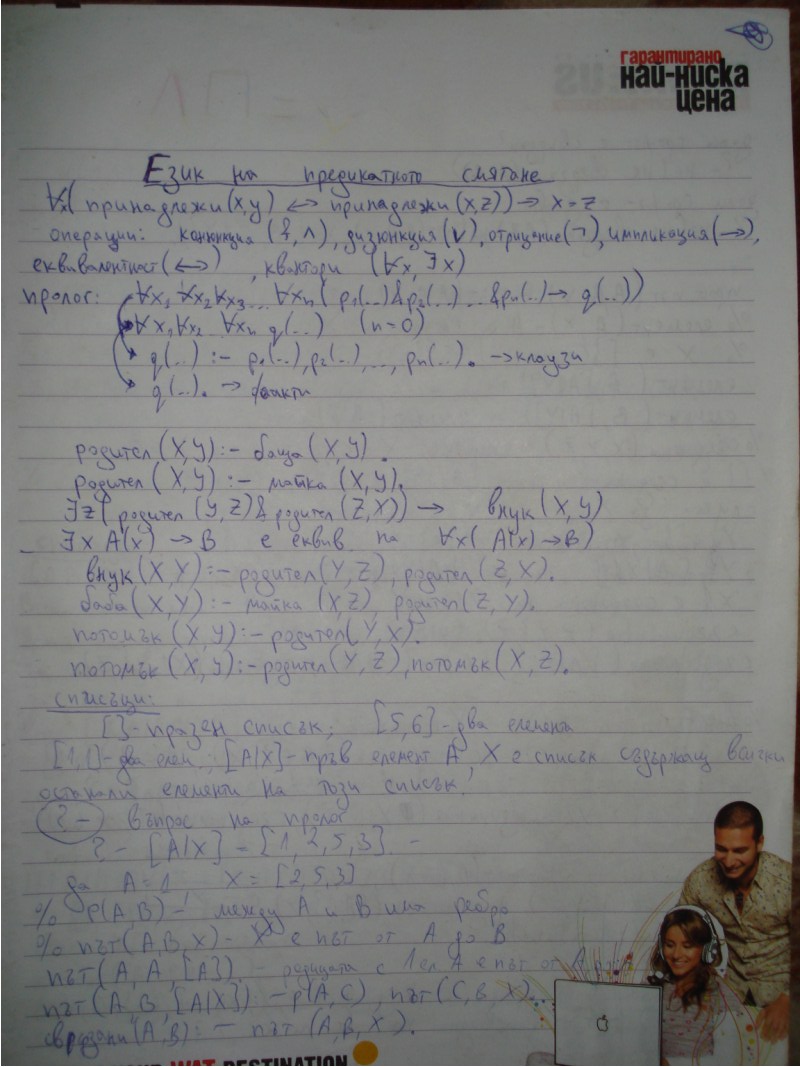 гарантирано
най-ниска
цена
Език на предикатното смятане
∀x( принадлежи(x,y) ↔ принадлежи(x,z)) → x=z
операции: конюнкция (&,∧), дизюнкция(∨), отрицание(¬), импликация(→),
еквивалентност(↔), квантори (∀x, ∃x)
пролог: ∀x₁ ∀x₂ ∀x₃... ∀xₙ( p₁(..)&p₂(..)...&pₙ(..)→ q(...))
∀x₁,∀x₂ ∀xₙ q(...) (n=0)
q(...) :- p₁(..),p₂(..),..., pₙ(..). →клаузи
q(...). → факти
родител(X,Y):- баща(X,Y).
родител(X,Y):- майка(X,Y).
∃z(родител(Y,Z)&родител(Z,X)) → внук(X,Y)
∃x A(x) → B е еквив. на ∀x( A(x)→B)
внук(X,Y):- родител(Y,Z), родител(Z,X).
баба(X,Y):- майка(X,Z), родител(Z,Y).
потомък(X,Y):- родител(Y,X).
потомък(X,Y):- родител(Y,Z), потомък(X,Z).
списъци:
[]-празен списък; [5,6]-два елемента
[1,[]-два елем.; [A|X]- пръв елемент A, X е списък съдържащ всички
останали елементи на този списък.
?- въпрос на пролог
?- [A|X] = [1,2,5,3].
да A=1 X=[2,5,3]
% p(A,B)- между A и B има ребро
% път(A,B,X)- X е път от A до B
път(A,A,[A]). - редицата с 1 ел. A е път от A
път(A,B,[A|X]):-p(A,C), път(C,B,X).
свързани(A,B):- път(A,B,X).
WAT DESTINATION